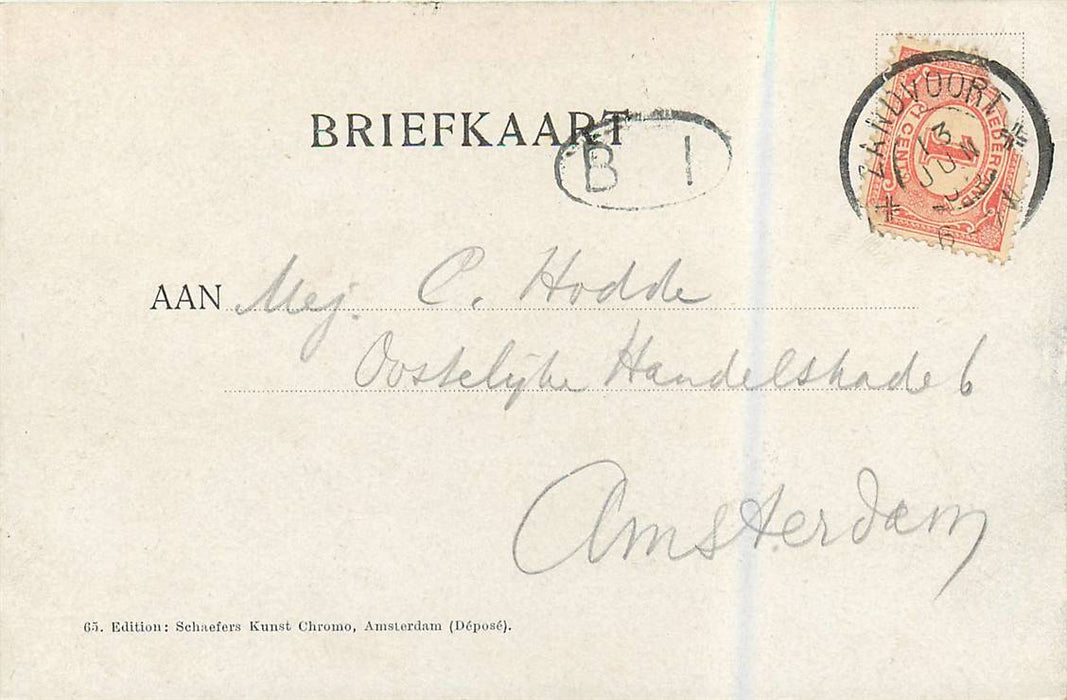 BRIEFKAART
B 1
ZANDVOORT
13
JUN
NEDERLAND
1
1 CENT
AAN Mej. C. Hodde
Oostelijke Handelskade 6
Amsterdam
65. Edition: Schaefers Kunst Chromo, Amsterdam (Déposé).